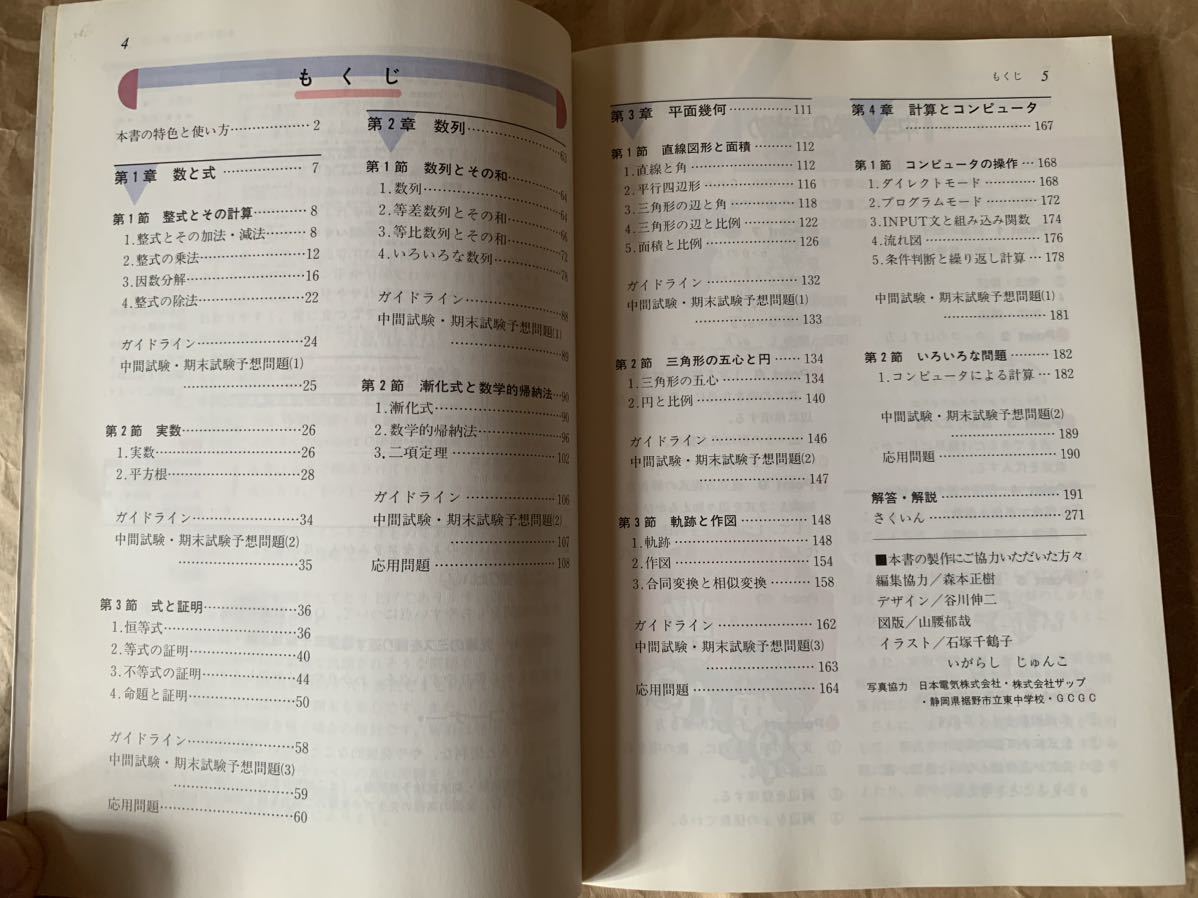 4
もくじ
本書の特色と使い方……………2
第1章 数と式……………7
第1節 整式とその計算…………8
1.整式とその加法・減法………8
2.整式の乗法…………………12
3.因数分解……………………16
4.整式の除法…………………22
ガイドライン…………………24
中間試験・期末試験予想問題(1)
…………………25
第2節 実数……………………26
1.実数…………………………26
2.平方根………………………28
ガイドライン…………………34
中間試験・期末試験予想問題(2)
…………………35
第3節 式と証明………………36
1.恒等式………………………36
2.等式の証明…………………40
3.不等式の証明………………44
4.命題と証明…………………50
ガイドライン…………………58
中間試験・期末試験予想問題(3)
…………………59
応用問題………………………60
第2章 数列……………63
第1節 数列とその和…………64
1.数列…………………………64
2.等差数列とその和…………66
3.等比数列とその和…………72
4.いろいろな数列……………78
ガイドライン…………………88
中間試験・期末試験予想問題(1)
…………………89
第2節 漸化式と数学的帰納法…90
1.漸化式………………………90
2.数学的帰納法………………96
3.二項定理……………………102
ガイドライン…………………106
中間試験・期末試験予想問題(2)
…………………107
応用問題………………………108
もくじ 5
第3章 平面幾何……………111
第1節 直線図形と面積………112
1.直線と角……………………112
2.平行四辺形…………………116
3.三角形の辺と角……………118
4.三角形の辺と比例…………122
5.面積と比例…………………126
ガイドライン…………………132
中間試験・期末試験予想問題(1)
…………………133
第2節 三角形の五心と円……134
1.三角形の五心………………134
2.円と比例……………………140
ガイドライン…………………146
中間試験・期末試験予想問題(2)
…………………147
第3節 軌跡と作図……………148
1.軌跡…………………………148
2.作図…………………………154
3.合同変換と相似変換………158
ガイドライン…………………162
中間試験・期末試験予想問題(3)
…………………163
応用問題………………………164
第4章 計算とコンピュータ
…………………167
第1節 コンピュータの操作…168
1.ダイレクトモード…………168
2.プログラムモード…………172
3.INPUT文と組み込み関数 174
4.流れ図………………………176
5.条件判断と繰り返し計算…178
中間試験・期末試験予想問題(1)
…………………181
第2節 いろいろな問題………182
1.コンピュータによる計算…182
中間試験・期末試験予想問題(2)
…………………189
応用問題………………………190
解答・解説……………………191
さくいん………………………271
■本書の製作にご協力いただいた方々
編集協力/森本正樹
デザイン/谷川伸二
図版/山腰郁哉
イラスト/石塚千鶴子
いがらし じゅんこ
写真協力 日本電気株式会社・株式会社ザップ
・静岡県裾野市立東中学校・GCGC